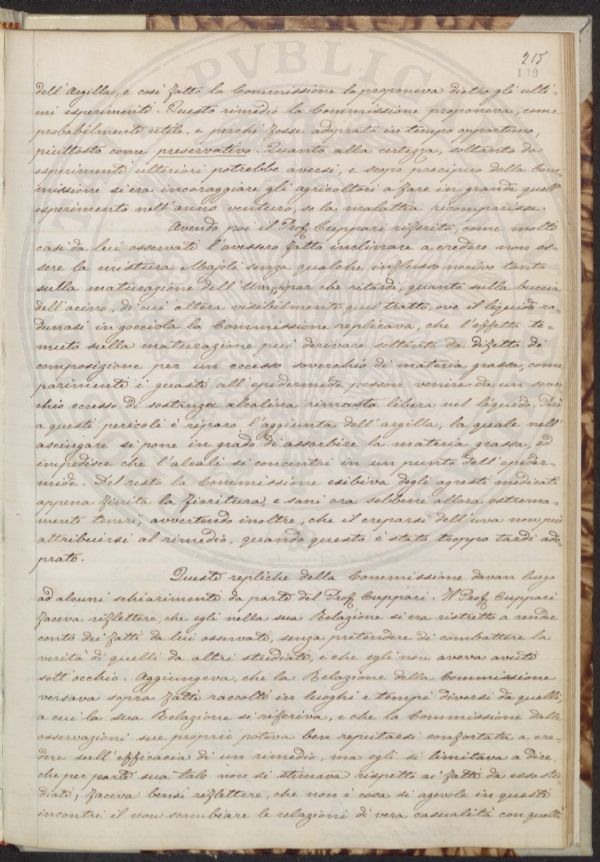 215
199
dell'Argilla, e così fatto la Commissione lo proponeva dietro gli ulti-
mi esperimenti. Questo rimedio la Commissione proponeva, come
probabilmente utile, e perchè fosse adoprato in tempo opportuno,
piuttosto come preservativo. Quanto alla certezza, soltanto da
esperimenti ulteriori potrebbe aversi, e scopo precipuo della Com-
missione si era incoraggiare gli agricoltori a fare in grande quell'
esperimento nell'anno venturo, se la malattia ricomparisse.
Avendo poi il Prof. Cuppari riferito, come molti
casi da lui osservati l'avessero fatto inclinare a credere non es-
sere la mistura Majoli senza qualche influsso nocivo tanto
sulla maturazione dell'Uva, par che ritardi, quanto sulla buccia
dell'acino, di cui altera visibilmente quel tratto, ove il liquido ra-
dunasi in gocciola la Commissione replicava, che l'effetto te-
muto sulla maturazione può derivare soltanto da difetto di
composizione per un eccesso soverchio di materia grassa, come
parimenti i guasti all'epidermide posson venire da un sover-
chio eccesso di sostanza alcalina rimasta libera nel liquido. Però
a questi pericoli è riparo l'aggiunta dell'argilla, la quale nell'
asciugare si pone in grado di assorbire la materia grassa, ed
impedisce che l'alcali si concentri in un punto dell'epider-
mide. Del resto la Commissione esibiva degli agresti medicati
appena finita la fioritura, e sani ora sebbene allora estrema-
mente teneri, avvertendo inoltre, che il creparsi dell'uva non può
attribuirsi al rimedio, quando questo è stato troppo tardi ado-
prato.
Queste repliche della Commissione davan luogo
ad alcuni schiarimenti da parte del Prof. Cuppari. Il Prof. Cuppari
faceva riflettere, che egli nella sua Relazione si era ristretto a render
conto dei fatti da lui osservati, senza pretendere di combattere la
verità di quelli da altri studiati, e che egli non aveva avuto
sott'occhio. Aggiungeva, che la Relazione della Commissione
versava sopra fatti raccolti in luoghi e tempi diversi da quelli,
a cui la sua Relazione si riferiva, e che la Commissione dalle
osservazioni sue proprie poteva ben reputarsi confortata a cre-
dere sull'efficacia di un rimedio, ma egli si limitava a dire,
che per parte sua tale non si stimava rispetto ai fatti da esso stu-
diati; faceva bensì riflettere, che non è cosa sì agevole in questi
incontri il non scambiare le relazioni di vera casualità con quelle